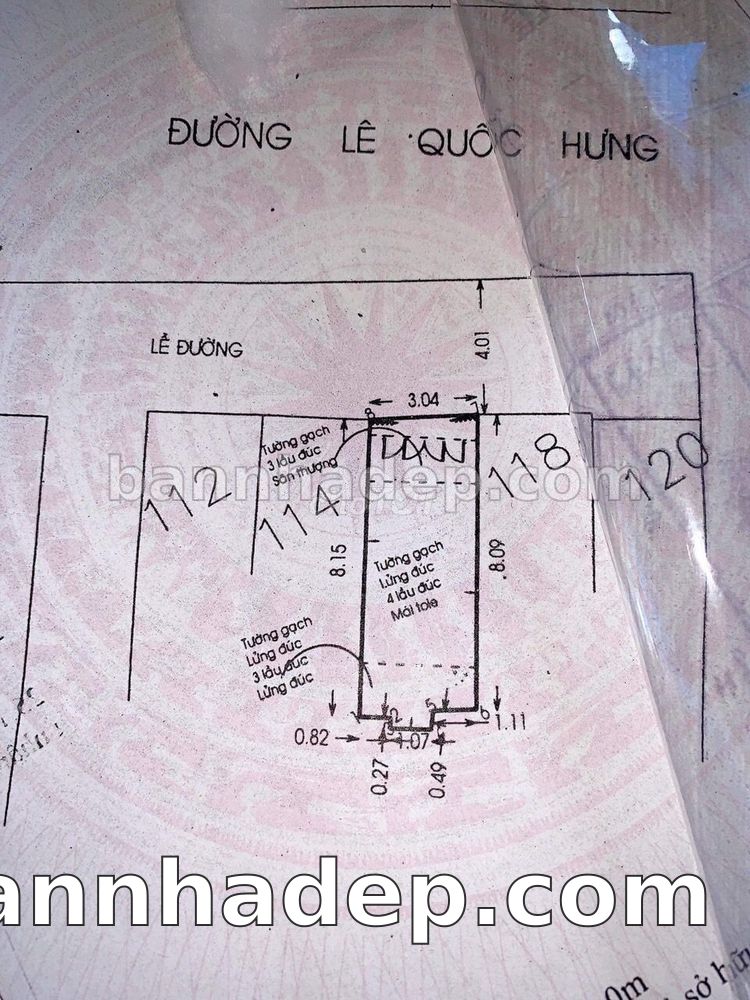 ĐƯỜNG LÊ QUỐC HƯNG
4.01
LỀ ĐƯỜNG
3.04
8
7
Tường gạch
3 lầu đúc
Sân thượng
bannhadep.com
112
114
118
120
8.15
8.09
Tường gạch
Lửng đúc
4 lầu đúc
Mái tole
Tường gạch
Lửng đúc
3 lầu đúc
Lửng đúc
1
2
5
6
0.82
1.07
1.11
0.27
0.49
annhadep.com
0m
sở hữu